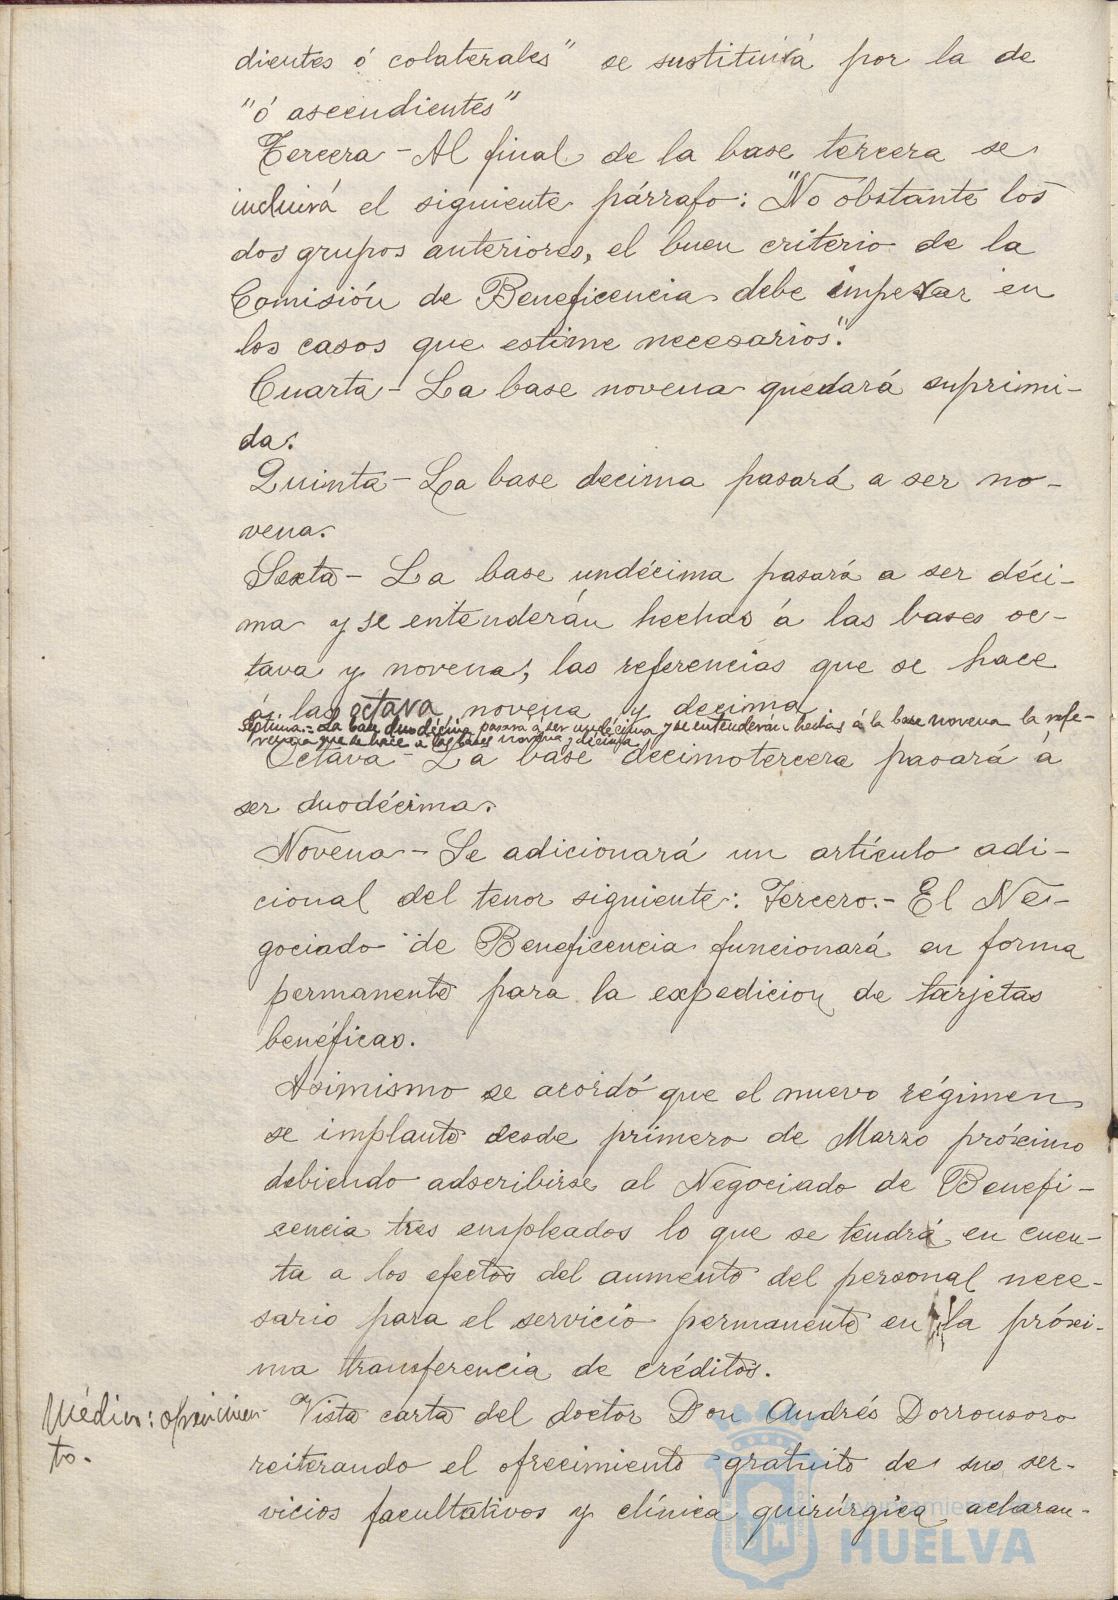 dientes ó colaterales" se sustituirá por la de
"ó ascendientes"
Tercera - Al final de la base tercera se
incluirá el siguiente párrafo: "No obstante los
dos grupos anteriores, el buen criterio de la
Comisión de Beneficencia debe imperar en
los casos que estime necesarios".
Cuarta - La base novena quedará suprimi-
da.
Quinta - La base decima pasará a ser no-
vena.
Sexta - La base undécima pasará a ser déci-
ma y se entenderán hechas á las bases oc-
tava y novena, las referencias que se hace
á las octava, novena y decima
Septima.- La base duodécima pasará á ser undécima y se entenderán hechas á la base novena la refe-
rencia que se hace a las bases novena y décima
Octava - La base decimotercera pasará á
ser duodécima.
Novena - Se adicionará un artículo adi-
cional del tenor siguiente: Tercero.- El Ne-
gociado de Beneficencia funcionará en forma
permanente para la expedicion de tarjetas
benéficas.
Asimismo se acordó que el nuevo régimen
se implante desde primero de Marzo próximo
debiendo adscribirse al Negociado de Benefi-
cencia tres empleados lo que se tendrá en cuen-
ta a los efectos del aumento del personal nece-
sario para el servicio permanente en la próxi-
ma transferencia de créditos.
Médico: ofrecimien-
to.
Vista carta del doctor Don Andrés Dorronsoro
reiterando el ofrecimiento gratuito de sus ser-
vicios facultativos y clínica quirúrgica aclaran-
Ayuntamiento de
HUELVA